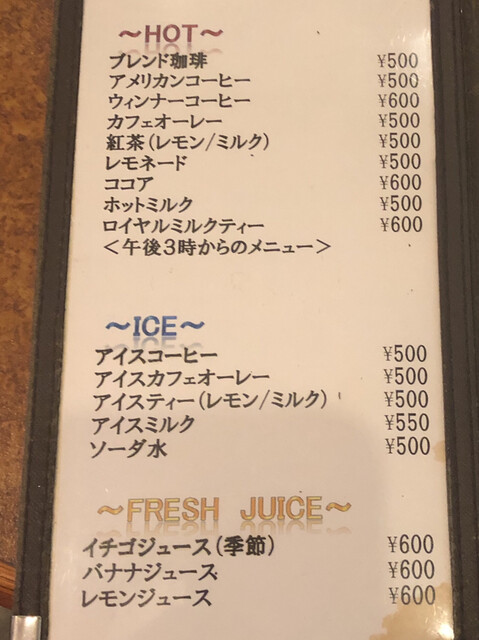 ～HOT～
ブレンド珈琲 ¥500
アメリカンコーヒー ¥500
ウィンナーコーヒー ¥600
カフェオーレー ¥500
紅茶(レモン/ミルク) ¥500
レモネード ¥500
ココア ¥600
ホットミルク ¥500
ロイヤルミルクティー ¥600
＜午後３時からのメニュー＞
～ICE～
アイスコーヒー ¥500
アイスカフェオーレー ¥500
アイスティー(レモン/ミルク) ¥500
アイスミルク ¥550
ソーダ水 ¥500
～FRESH JUICE～
イチゴジュース(季節) ¥600
バナナジュース ¥600
レモンジュース ¥600